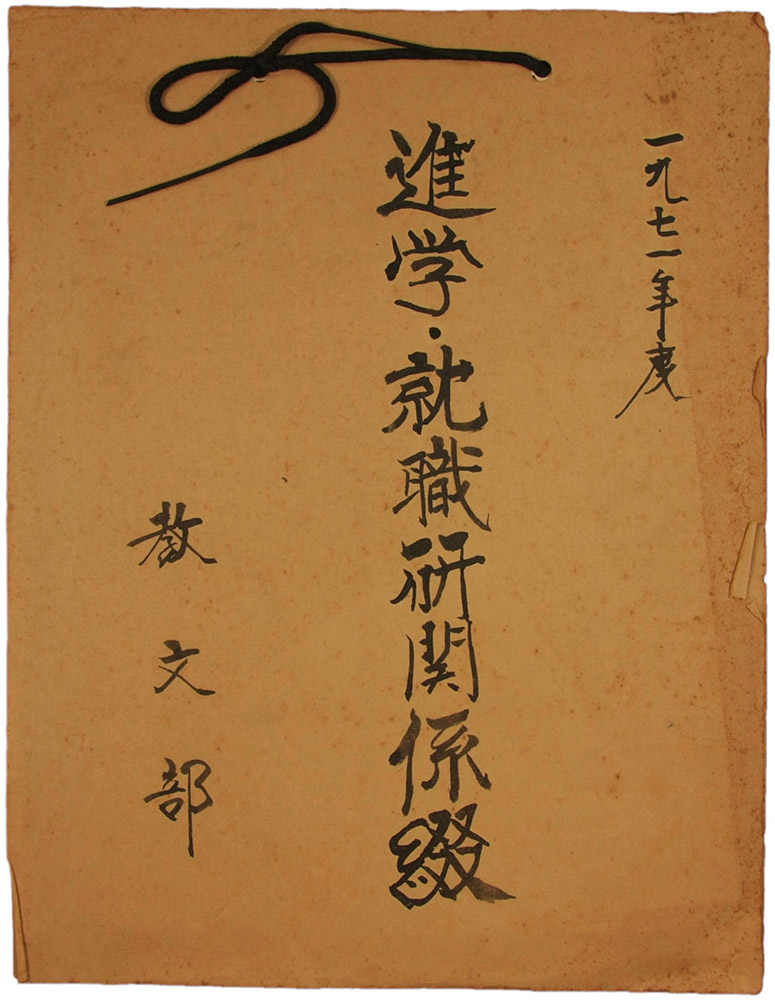 一九七一年度
進学・就職研関係綴
教文部